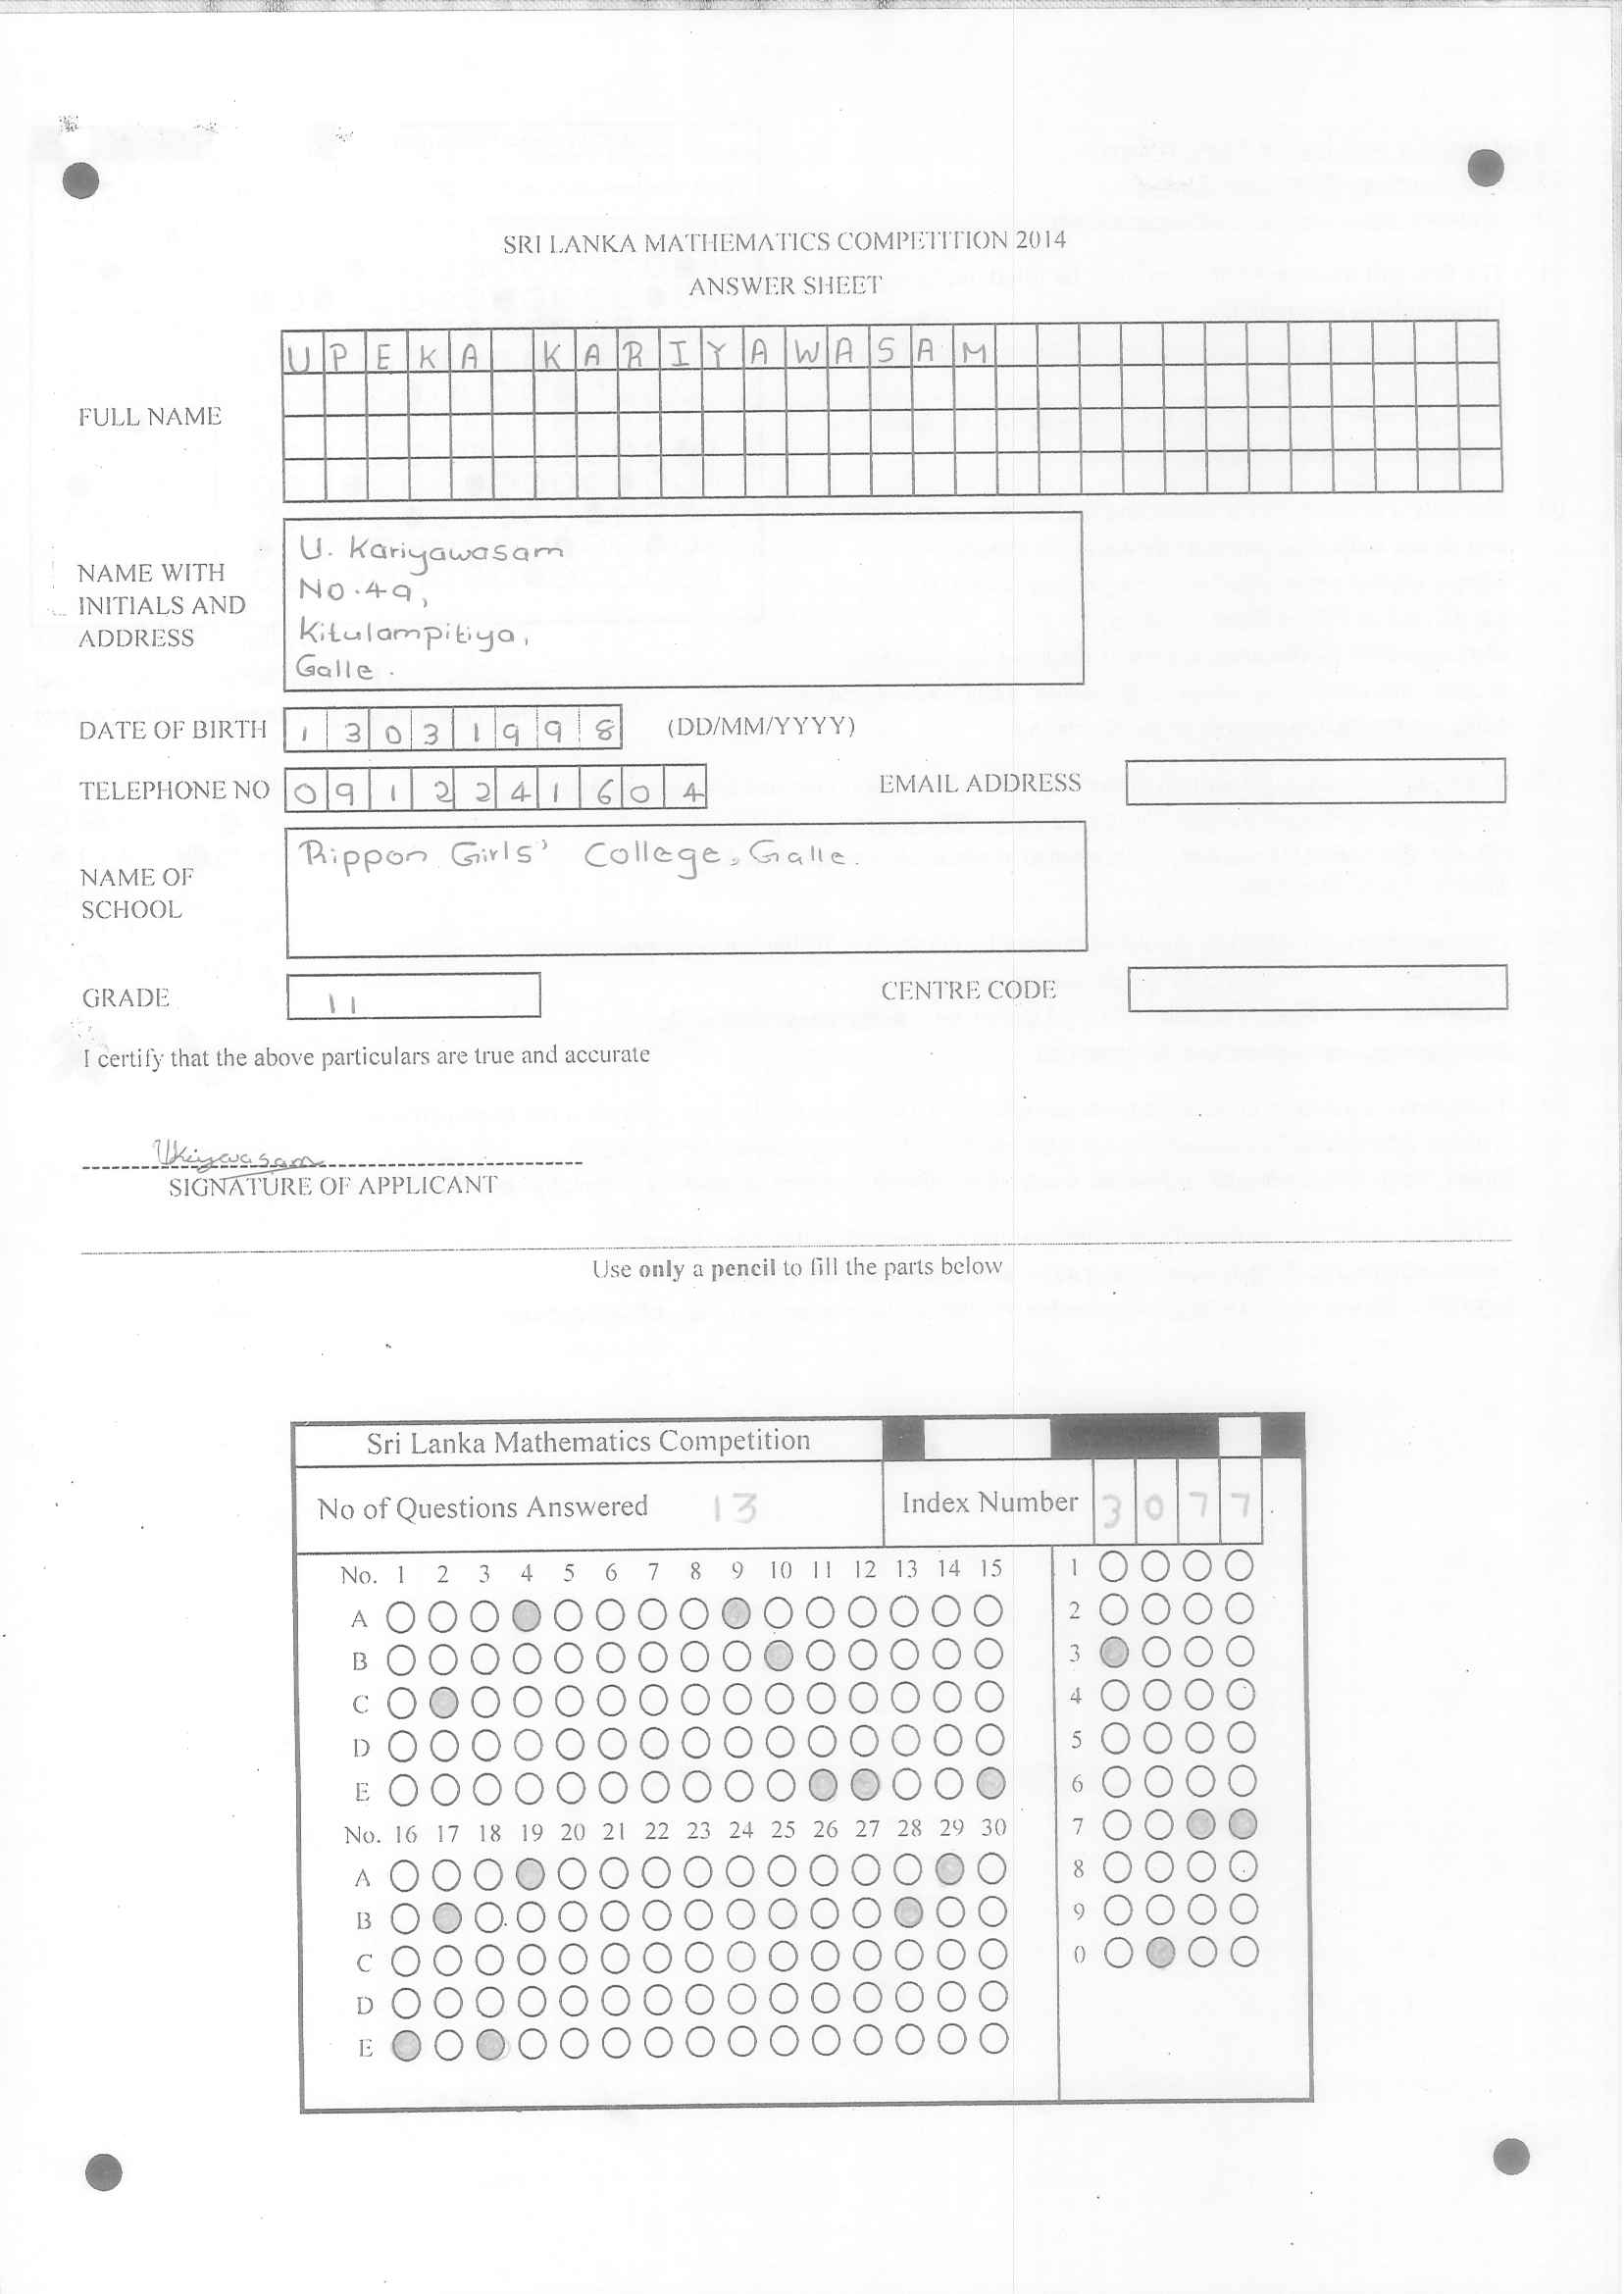 SRI LANKA MATHEMATICS COMPETITION 2014
ANSWER SHEET
UPEKA KARIYAWASAM
FULL NAME
U. Kariyawasam
NAME WITH
No.49,
INITIALS AND
Kitulampitiya,
ADDRESS
Galle.
DATE OF BIRTH 13031998 (DD/MM/YYYY)
TELEPHONE NO 0912241604 EMAIL ADDRESS
Rippon Girls' College, Galle.
NAME OF
SCHOOL
GRADE 11 CENTRE CODE
I certify that the above particulars are true and accurate
Ukiyawasam
SIGNATURE OF APPLICANT
Use only a pencil to fill the parts below
Sri Lanka Mathematics Competition
No of Questions Answered 13 Index Number 3 0 7 7
No. 1 2 3 4 5 6 7 8 9 10 11 12 13 14 15 1
A 2
B 3
C 4
D 5
E 6
No. 16 17 18 19 20 21 22 23 24 25 26 27 28 29 30 7
A 8
B 9
C 0
D
E